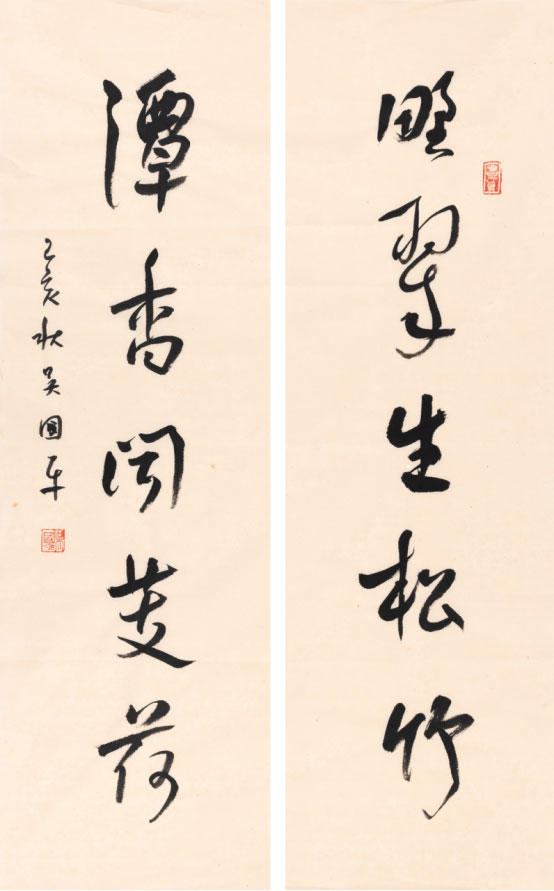 野翠生松竹
潭香闻芰荷
己亥秋吴國